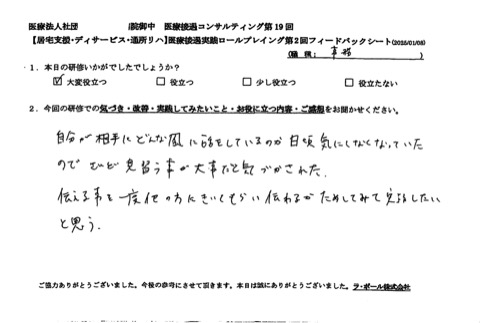 医療法人社団 院御中 医療接遇コンサルティング第19回
【居宅支援・ディサービス・通所リハ】医療接遇実践ロールプレイング第2回フィードバックシート(2025/01/08)
(職種: 事務 )
1. 本日の研修いかがでしたでしょうか?
☑ 大変役立つ □ 役立つ □ 少し役立つ □ 役立たない
2. 今回の研修での気づき・改善・実践してみたいこと・お役に立つ内容・ご感想をお聞かせください。
自分が相手にどんな風に話をしているのか日頃気にしなくなっていた
ので 見習う事が大事だと気づかされた。
伝える事を一度他の方にきいてもらい伝わるかためしてみて したい
と思う。
ご協力ありがとうございました。今後の参考にさせて頂きます。本日は誠にありがとうございました。ラ・ポール株式会社